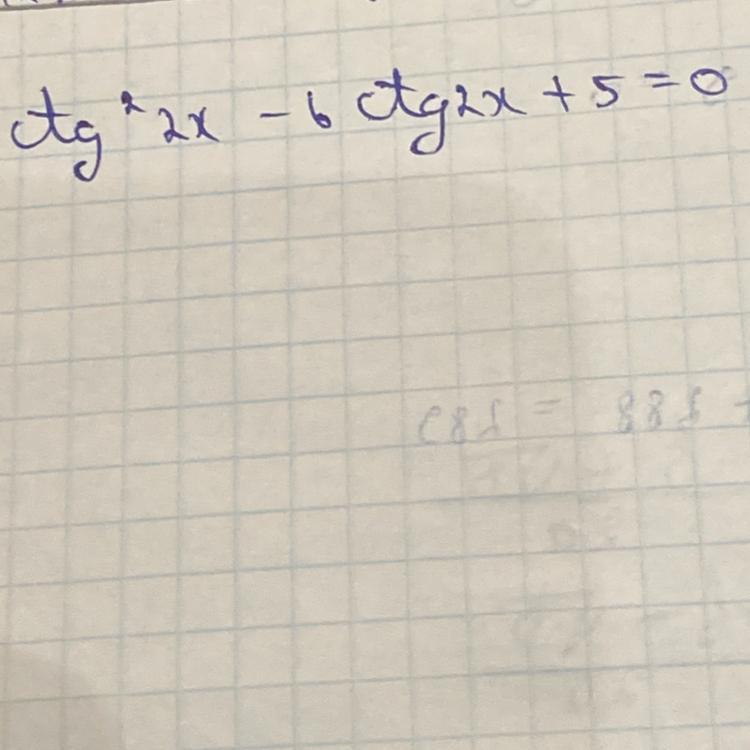 ctg² 2x - 6 ctg2x + 5 = 0